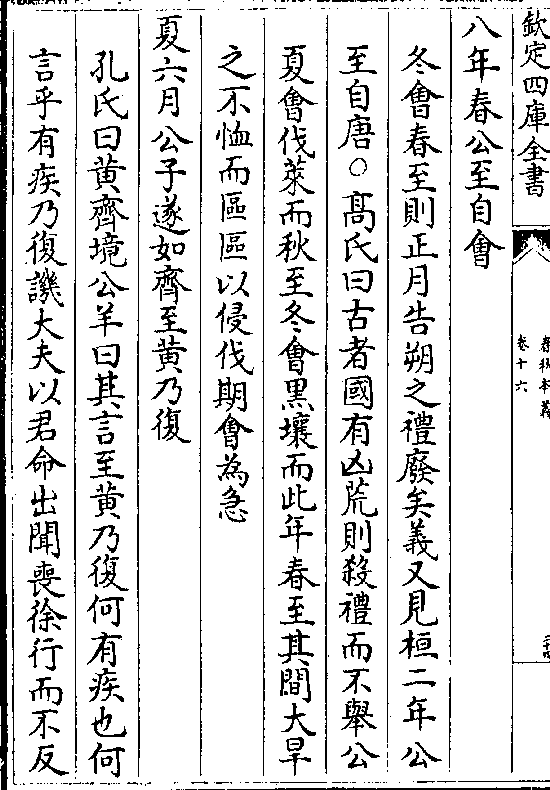 欽定四庫全書
春秋本義
卷十六
八年春公至自會
冬會春至則正月告朔之禮廢矣義又見桓二年公
至自唐○高氏曰古者國有凶荒則殺禮而不舉公
夏會伐萊而秋至冬會黑壤而此年春至其間大旱
之不恤而區區以侵伐期會為急
夏六月公子遂如齊至黃乃復
孔氏曰黃齊境公羊曰其言至黃乃復何有疾也何
言乎有疾乃復譏大夫以君命出聞喪徐行而不反